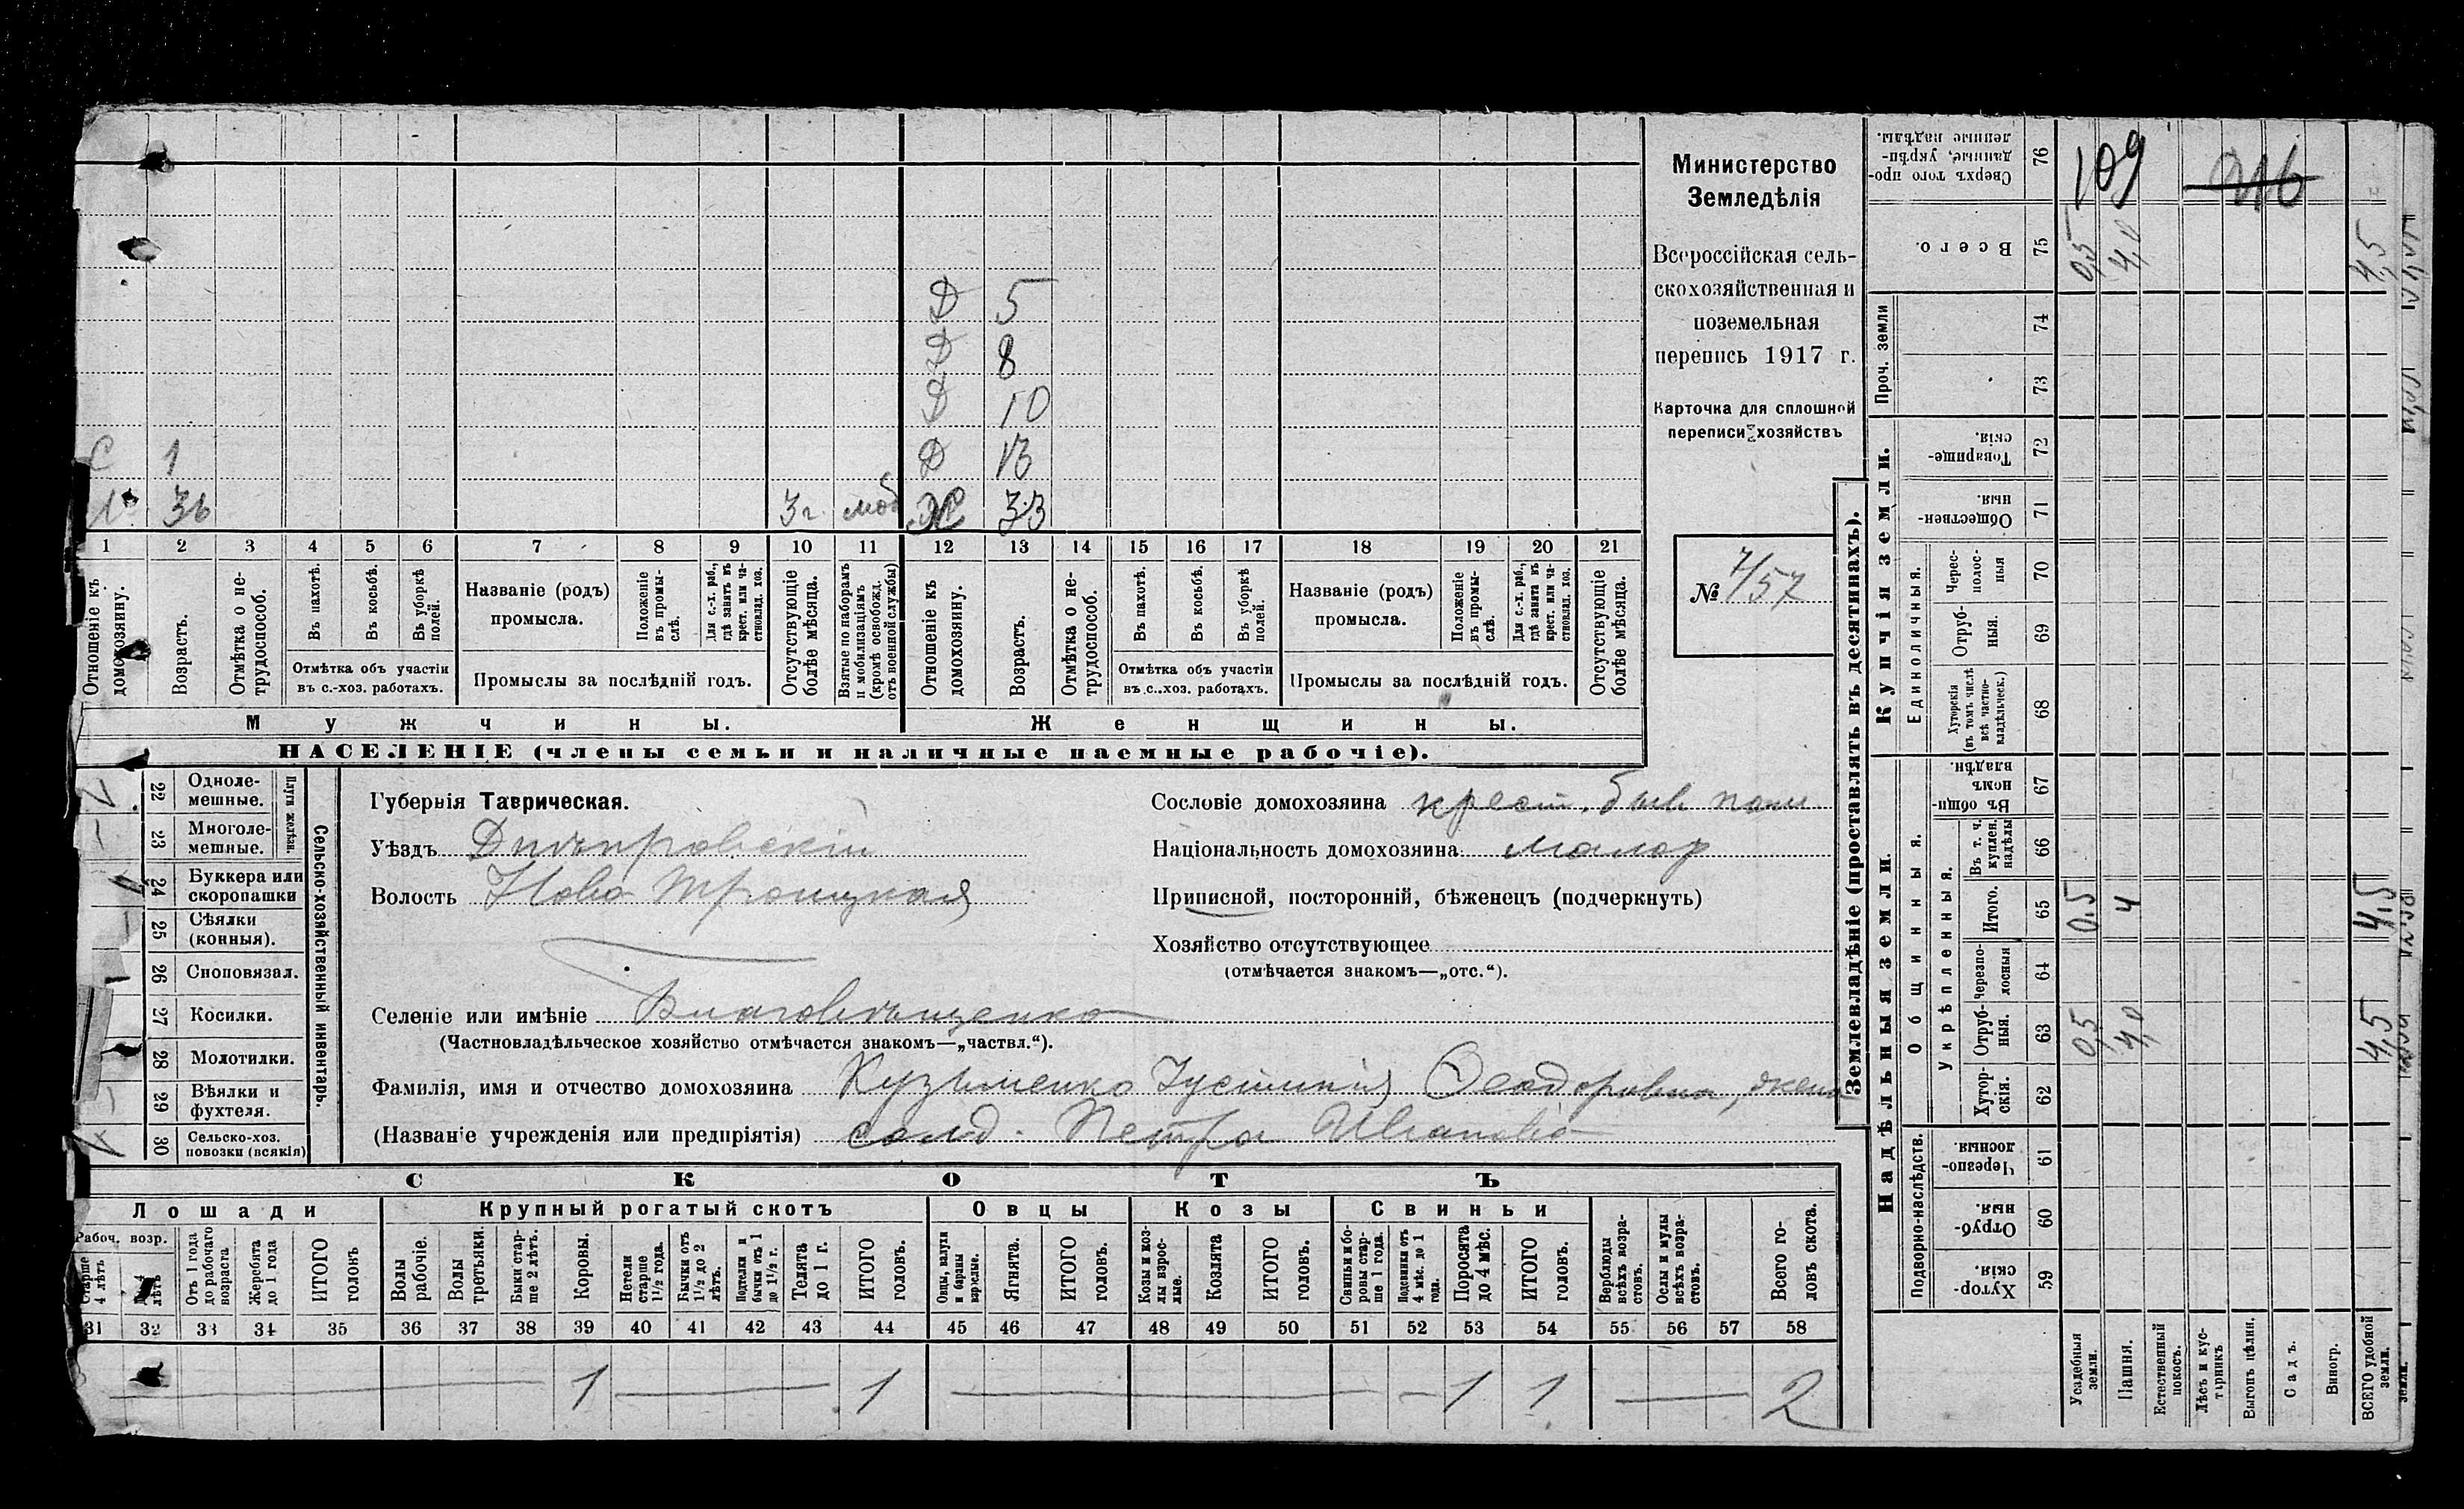 Министерство
Земледѣлія
Всероссійская сель-
скохозяйственная и
поземельная
перепись 1917 г.
Карточка для сплошной
переписи хозяйствъ
№ 4/57
С 1
36 3 г. моб
Д 5
Д 8
Д 10
Д 13
Ж 33
1 2 3 4 5 6 7 8 9 10 11 12 13 14 15 16 17 18 19 20 21
Отношеніе къ домохозяину.
Возрастъ.
Отмѣтка о не-трудоспособ.
Въ пахотѣ.
Въ косьбѣ.
Въ уборкѣ полей.
Отмѣтка объ участіи
въ с.-хоз. работахъ.
Названіе (родъ)
промысла.
Положеніе въ промы-слѣ.
Для с.-х. раб., гдѣ занятъ въ крест. или ча-стновлад. хоз.
Промыслы за послѣдній годъ.
Отсутствующіе болѣе мѣсяца.
Взятые по наборамъ и мобилизаціямъ (кромѣ освобожд. отъ военной службы)
Отношеніе къ домохозяину.
Возрастъ.
Отмѣтка о не-трудоспособ.
Въ пахотѣ.
Въ косьбѣ.
Въ уборкѣ полей.
Отмѣтка объ участіи
въ с..хоз. работахъ.
Названіе (родъ)
промысла.
Положеніе въ промы-слѣ.
Для с.-х. раб., гдѣ занята въ крест. или ча-стновлад. хоз.
Промыслы за послѣдній годъ.
Отсутствующіе болѣе мѣсяца.
Мужчины.
Женщины.
НАСЕЛЕНІЕ (члены семьи и наличные наемные рабочіе).
Сельско-хозяйственный инвентарь.
Плуги желѣзн.
22 Одноле-мешные.
23 Многоле-мешные.
24 Буккера или скоропашки
25 Сѣялки (конныя).
26 Сноповязал.
27 Косилки.
28 Молотилки.
29 Вѣялки и фухтеля.
30 Сельско-хоз. повозки (всякія)
Губернія Таврическая.
Уѣздъ Днѣпровскій
Волость Ново Троицкая
Селеніе или имѣніе Благовѣщенка
(Частновладѣльческое хозяйство отмѣчается знакомъ—„частвл.“).
Фамилія, имя и отчество домохозяина Кузьменко Іустинія Феодоровна, жена
(Названіе учрежденія или предпріятія) солд. Петра Иванова
Сословіе домохозяина крест. быв пом
Національность домохозяина малор
Приписной, посторонній, бѣженецъ (подчеркнуть)
Хозяйство отсутствующее
(отмѣчается знакомъ—„отс.“).
СКОТЪ
Лошади
Крупный рогатый скотъ
Овцы
Козы
Свиньи
Рабоч. возр.
Старше 4 лѣтъ
лѣтъ
Отъ 1 года до рабочаго возраста
Жеребята до 1 года
ИТОГО головъ
Волы рабочіе.
Волы третьяки.
Быки стар-ше 2 лѣтъ.
Коровы.
Нетели старше 1½ года.
Бычки отъ 1½ до 2 лѣтъ.
Подтелки и бычки отъ 1 до 1½ г.
Телята до 1 г.
ИТОГО головъ.
Овцы, валухи и бараны взрослые.
Ягнята.
ИТОГО головъ.
Козы и коз-лы взрос-лые.
Козлята
ИТОГО головъ.
Свиньи и бо-ровы стар-ше 1 года.
Подсвинки отъ 4 мѣс. до 1 года.
Поросята до 4 мѣс.
ИТОГО головъ.
Верблюды всѣхъ возра-стовъ.
Ослы и мулы всѣхъ возра-стовъ.
Всего го-ловъ скота.
31 32 33 34 35 36 37 38 39 40 41 42 43 44 45 46 47 48 49 50 51 52 53 54 55 56 57 58
— 1 — 1 — — 1 1 — 2
Землевладѣніе (проставлять въ десятинахъ).
Надѣльныя земли.
Купчія земли.
Проч. земли
Подворно-наслѣдств.
Общинныя.
Укрѣпленныя.
Единоличныя.
76 Сверхъ того про-данные, укрѣп-ленные надѣлы.
109
75 Всего. 0,5 4,0 4,5
74
73
72 Товарище-скія.
71 Обществен-ныя.
70 Черес-полос-ныя
69 Отруб-ныя.
68 Хуторскія (въ томъ числѣ всѣ частно-владѣльческ.)
67 Въ общи-номъ владѣн.
66 Въ т. ч. куплен. надѣлы
65 Итого. 0,5 4 4,5
64 Черезпо-лосныя
63 Отруб-ныя. 0,5 4,0 4,5
62 Хутор-скія.
61 Черезпо-лосныя
60 Отруб-ныя.
59 Хутор-скія.
Усадебныя земли.
Пашня.
Естественный покосъ.
Лѣсъ и кус-тарникъ
Выгонъ цѣлин.
Садъ.
Виногр.
ВСЕГО удобной земли.